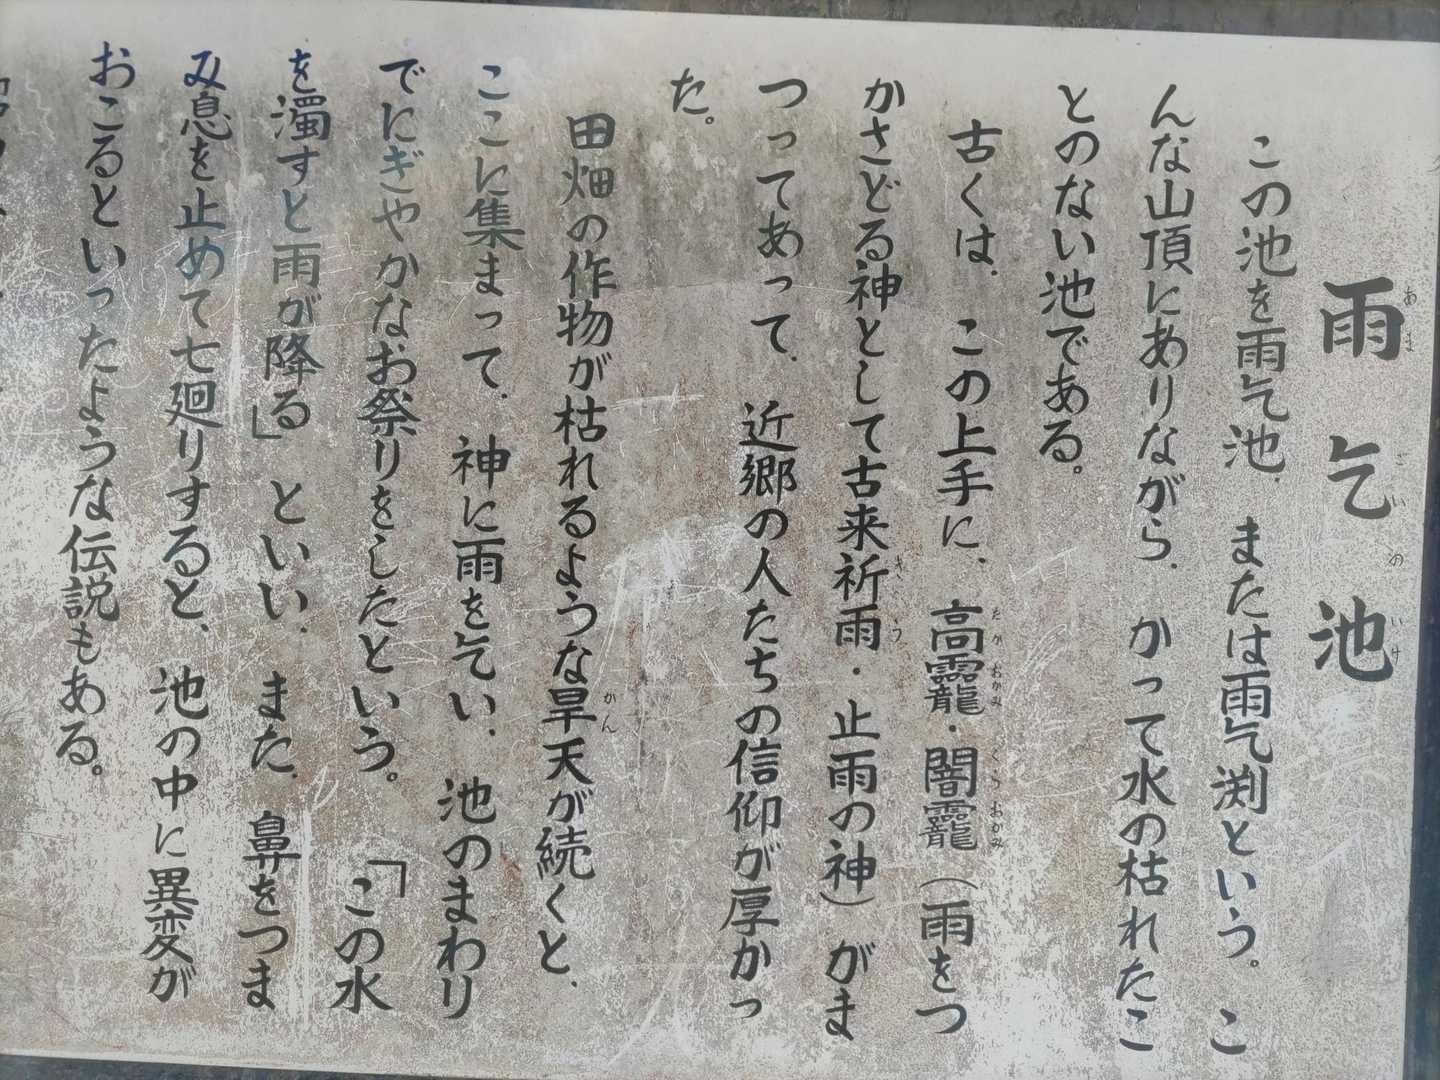 雨乞池
この池を雨乞池、または雨乞渕という。こ
んな山頂にありながら、かって水の枯れたこ
とのない池である。
古くは、この上手に、高龗・闇龗(雨をつ
かさどる神として古来祈雨・止雨の神)がま
つってあって、近郷の人たちの信仰が厚かっ
た。
田畑の作物が枯れるような旱天が続くと、
ここに集まって、神に雨を乞い、池のまわり
でにぎやかなお祭りをしたという。「この水
を濁すと雨が降る」といい、また、鼻をつま
み息を止めて七廻りすると、池の中に異変が
おこるといったような伝説もある。